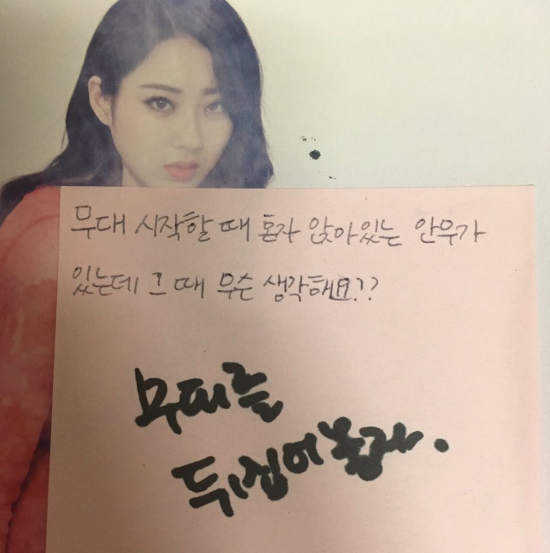 무대 시작할 때 혼자 앉아있는 안무가
있는데 그 때 무슨 생각해요??
무대를
뒤집어놓자.